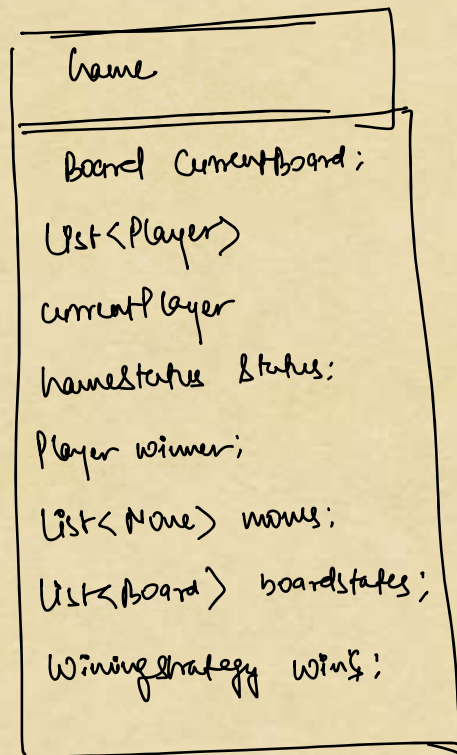 Game
Board CurrentBoard;
List<Player>
currentPlayer
GameStatus status;
Player winner;
List<Move> moves;
List<Board> boardstates;
Winingstrategy winS;